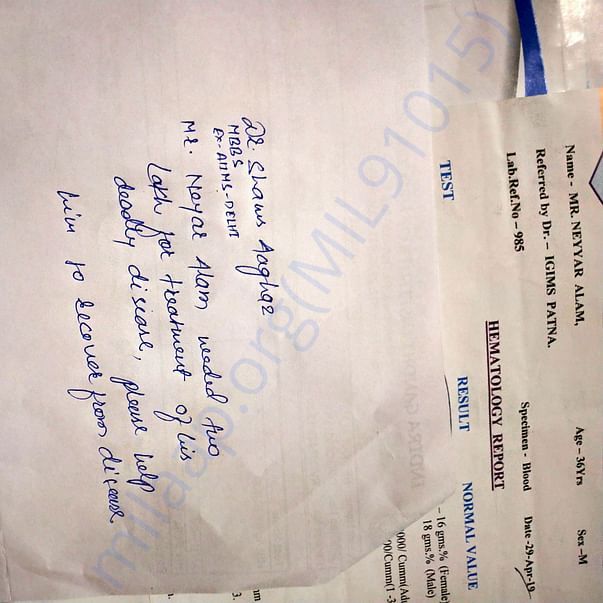 Dr. Shams Aaghaz
MBBS
EX-AIIMS-DELHI
Mr. Neyar Alam needed two
Lakh for treatment of his
deadly disease, please help
him to recover from disease
Name - MR. NEYYAR ALAM,
Age – 36Yrs
Sex –M
Referred by Dr.– IGIMS PATNA.
Lab.Ref.No – 985
Specimen - Blood
Date -29-Apr-19
HEMATOLOGY REPORT
TEST
RESULT
NORMAL VALUE
– 16 gms.% (Female)
18 gms.% (Male)
000/ Cumm(Adu
00/Cumm(1 -3
milaap.org(MIL91015)